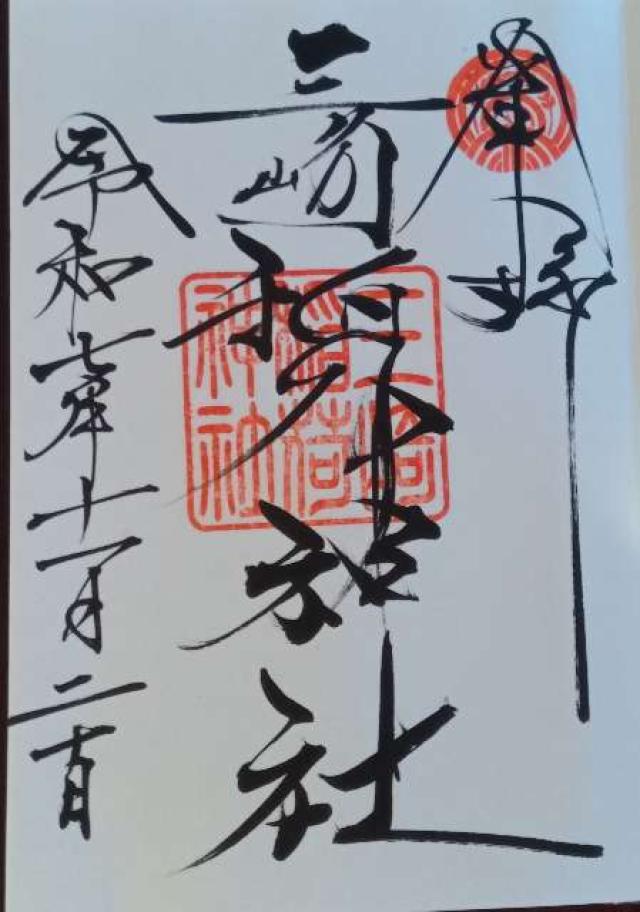 奉拝
三崎稲荷神社
三崎
稲荷
神社
令和七年十一月二十日